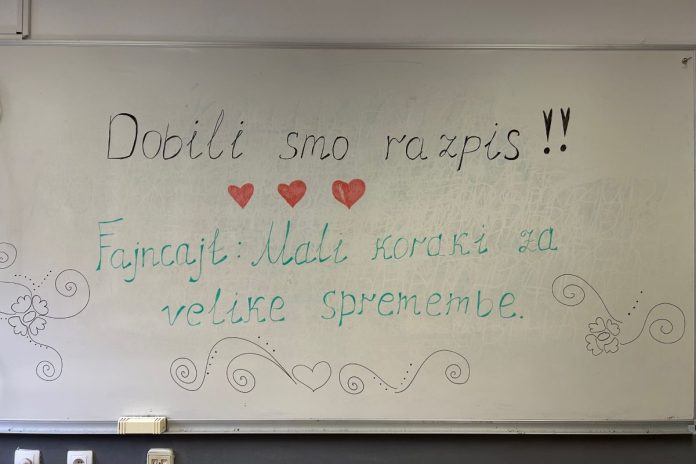 Dobili smo razpis!!
Fajncajt: Mali koraki za
velike spremembe.